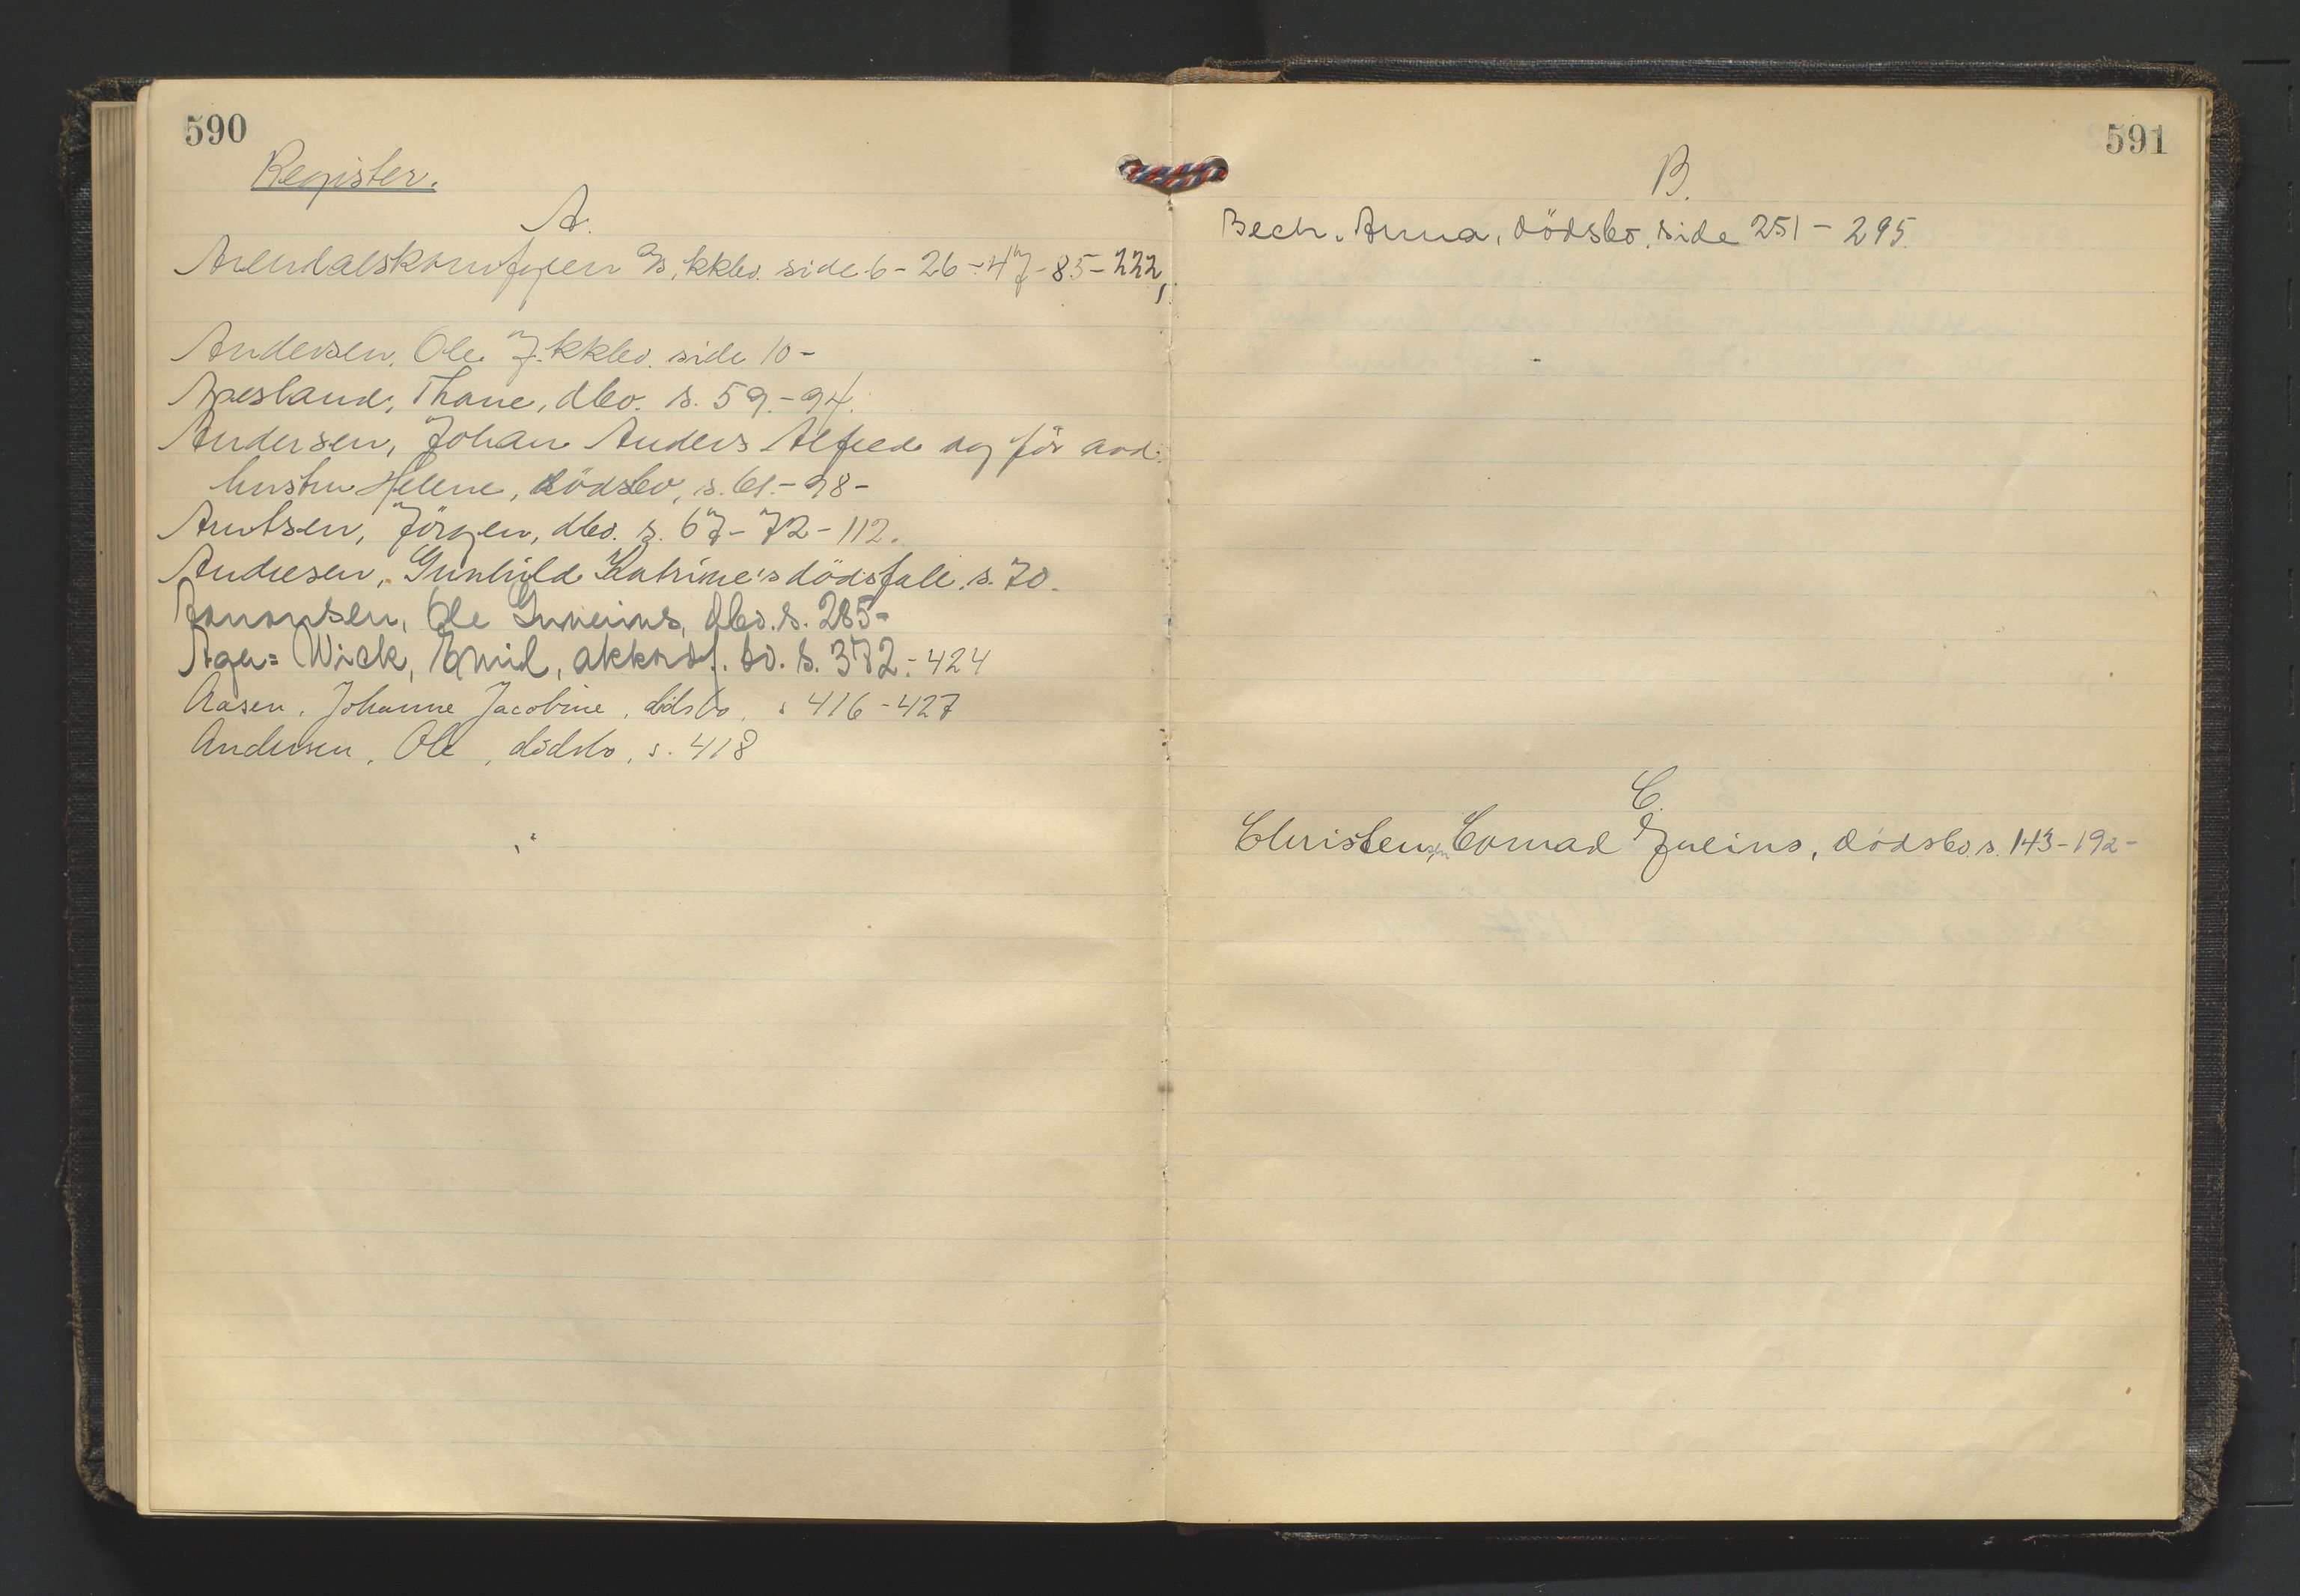 590
Register.
A.
Arendalskompagen A/s, kkbo. side 6-26-47-85-222,
Andersen, Ole J. kkbo. side 10-
Apesland, Thone, dbo. s. 59.-94.
Andersen, Johan Anders Alfred og før avd.
hustru Helene, dödsbo, s. 61.-98-
Arntsen, Jörgen, dbo. s. 67-72-112.
Andresen, Gunhild Katrine's dödsfall. s. 70.
Aanonsen, Ole Gunerius, dbo. s. 285-
Ager= Wick, Emil, akkordf. bo. s. 372.-424
Aasen, Johanne Jacobine, dödsbo, s 416-427
Andersen, Ole, dödsbo, s. 418
591
B.
Bech. Anna, dödsbo, side 251-295.
C.
Christensen Conrad Julius, dödsbo. s. 143-192-